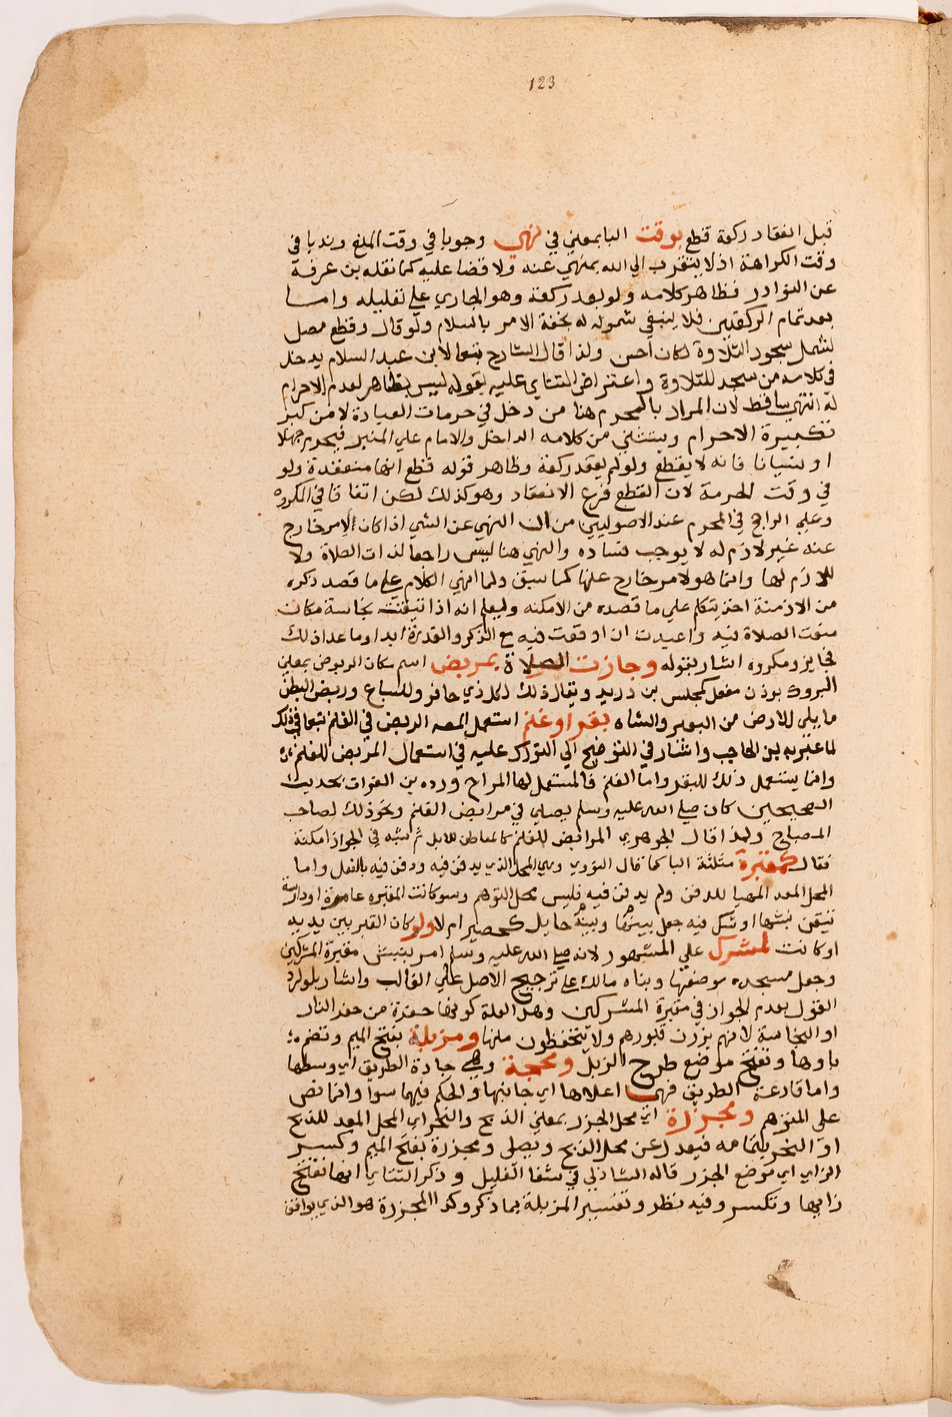 123
قبل انعقاد ركعة قطع بوقت البا بمعني في نهي وجوبا في وقت المنع وندبا في
وقت الكراهة اذ لا يتقرب الي الله بمنهي عنه ولا قضا عليه كما نقله بن عرفة
عن النوادر فظاهر كلامه ولو بعد ركعة وهو الجاري علي تعليله واما
بعد تمام الركعتين فلا ينبغي شموله له لخفة الامر بالسلام ولو قال وقطع مصل
لشمل سجود التلاوة لكان احسن ولذا قال الشارح تبعا لابن عبد السلام يدخل
في كلامه من سجد للتلاوة واعتراض التتاي عليه بقوله ليس بظاهر لعدم الاحرام
له انتهي ساقط لان المراد بالمحرم هنا من دخل في حرمات العبادة لا من كبر
تكبيرة الاحرام ويستثني من كلامه الداخل والامام علي المنبر فيحرم جهلا
او نسيانا فانه لا يقطع ولو لم يعقد ركعة وظاهر قوله قطع انها منعقدة ولو
في وقت الحرمة لان القطع فرع الانعقاد وهو كذلك لكن اتفاقا في المكروه
وعلي الراجح في المحرم عند الاصوليين من ان النهي عن الشي اذا كان لامر خارج
عنه غير لازم له لا يوجب فساده والنهي هنا ليس راجعا لذات الصلاة ولا
للازم لها وانما هو لامر خارج عنها كما سبق ولما انهي الكلام علي ما قصد ذكره
من الازمنة اخذ يتكلم علي ما قصده من الامكنه وليعلم انه اذا تيقنت نجاسة مكان
منعت الصلاة فيه واعيدت ان اوقعت فيه مع الذكر والقدرة ابدا وما عدا ذلك
فجايز ومكروه اشار بقوله وجازت الصلاة بمربض اسم مكان الربوض بمعني
البروك بوزن مفعل كمجلس بن دريد ويقال ذلك لكل ذي حافر وللسباع وربض البطن
ما يلي الارض من البعير والشاه بقر او غنم استعمل المص الربض في الغنم تبعا في ذلك
لما عبر به بن الحاجب واشار في التوضيح الي التورك عليه في استعمال المربض للغنم
وانما يستعمل ذلك للبقر واما الغنم فالمستعمل لها المراح ورده بن الفرات بحديث
الصحيحين كان صلي الله عليه وسلم يصلي في مرابض الغنم ونحو ذلك لصاحب
المصباح ولهذا قال الجوهري المرابض للغنم كالمعاطن للابل ثم شبه في الجواز امكنة
فقال كمقبرة مثلثة البا كما قال النووي وهي المحل الذي يدفن فيه ودفن فيه بالفعل واما
المحل المعد المهيا للدفن ولم يدفن فيه فليس محل التوهم وسوا كانت المقبره عامرة او دارسة
تيقن نبشها او شك فيه جعل بينه وبينها حايل كحصير ام لا ولو كان القبر بين يديه
او كانت لمشرك علي المشهور لانه صلي الله عليه وسلم امر بنبش مقبرة المشركين
وجعل مسجده موضعها وبناه مالك علي ترجيح الاصل علي الغالب واشار بلو لرد
القول بعدم الجواز في مقبرة المشركين وهل العلة كونها حفرة من حفر النار
او النجاسة لانهم يزرن قبورهم ولا يتحفظون منها ومزبلة بفتح الميم وتضم
باوها وتفتح موضع طرح الزبل ومحجة وهي جادة الطريق اي وسطها
واما قارعة الطريق فهي اعلاها اي جانبها والحكم فيهما سوا وانما نص
علي المتوهم ومجزرة اي محل الجزر بمعني الذبح والنحر اي المحل المعد للذبح
او النحر بتمامه فيعدل عن محل الذبح ويصلي ومجزرة بفتح الميم وكسر
الزاي اي موضع الجزر قاله الشاذلي في شفا الغليل وذكر التتاي انها تفتح
زايها وتكسر وفيه نظر وتفسير المزبلة بما ذكر وكذا المجزرة هو الذي يوافق